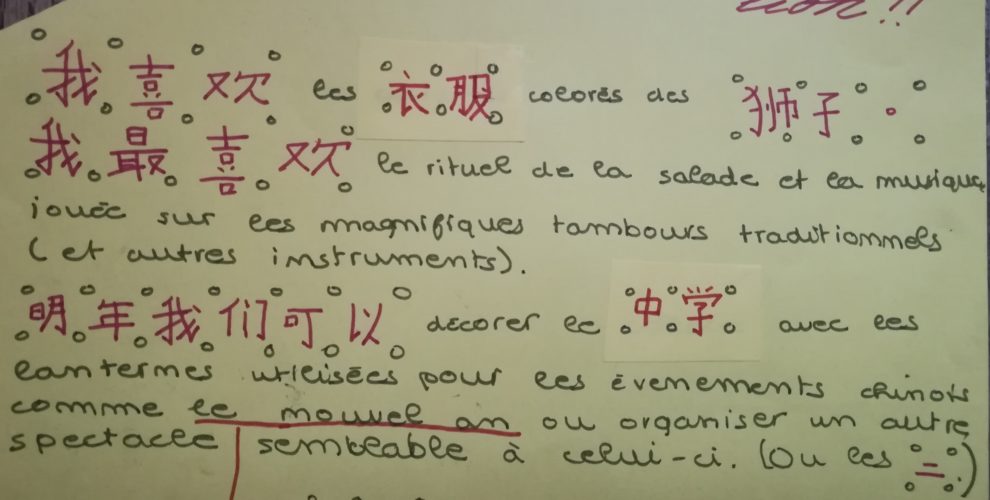 tion!!
我喜欢 les 衣服 colorés des 狮子.
我最喜欢 le rituel de la salade et la musique
jouée sur les magnifiques tambours traditionnels
(et autres instruments).
明年我们可以 décorer le 中学 avec les
lanternes utilisées pour les évenements chinois
comme le nouvel an ou organiser un autre
spectacle semblable à celui-ci. (Ou les 二.)